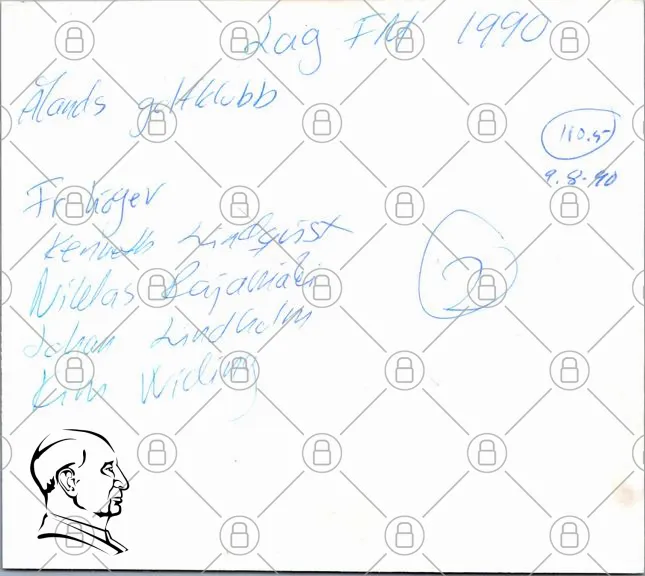 Lag FM 1990
Ålands golfklubb
110.5
9.8.90
Fr. höger
Kenneth Lindqvist
Niklas Rajamäki
Johan Lindholm
Kim Wiclimg
2